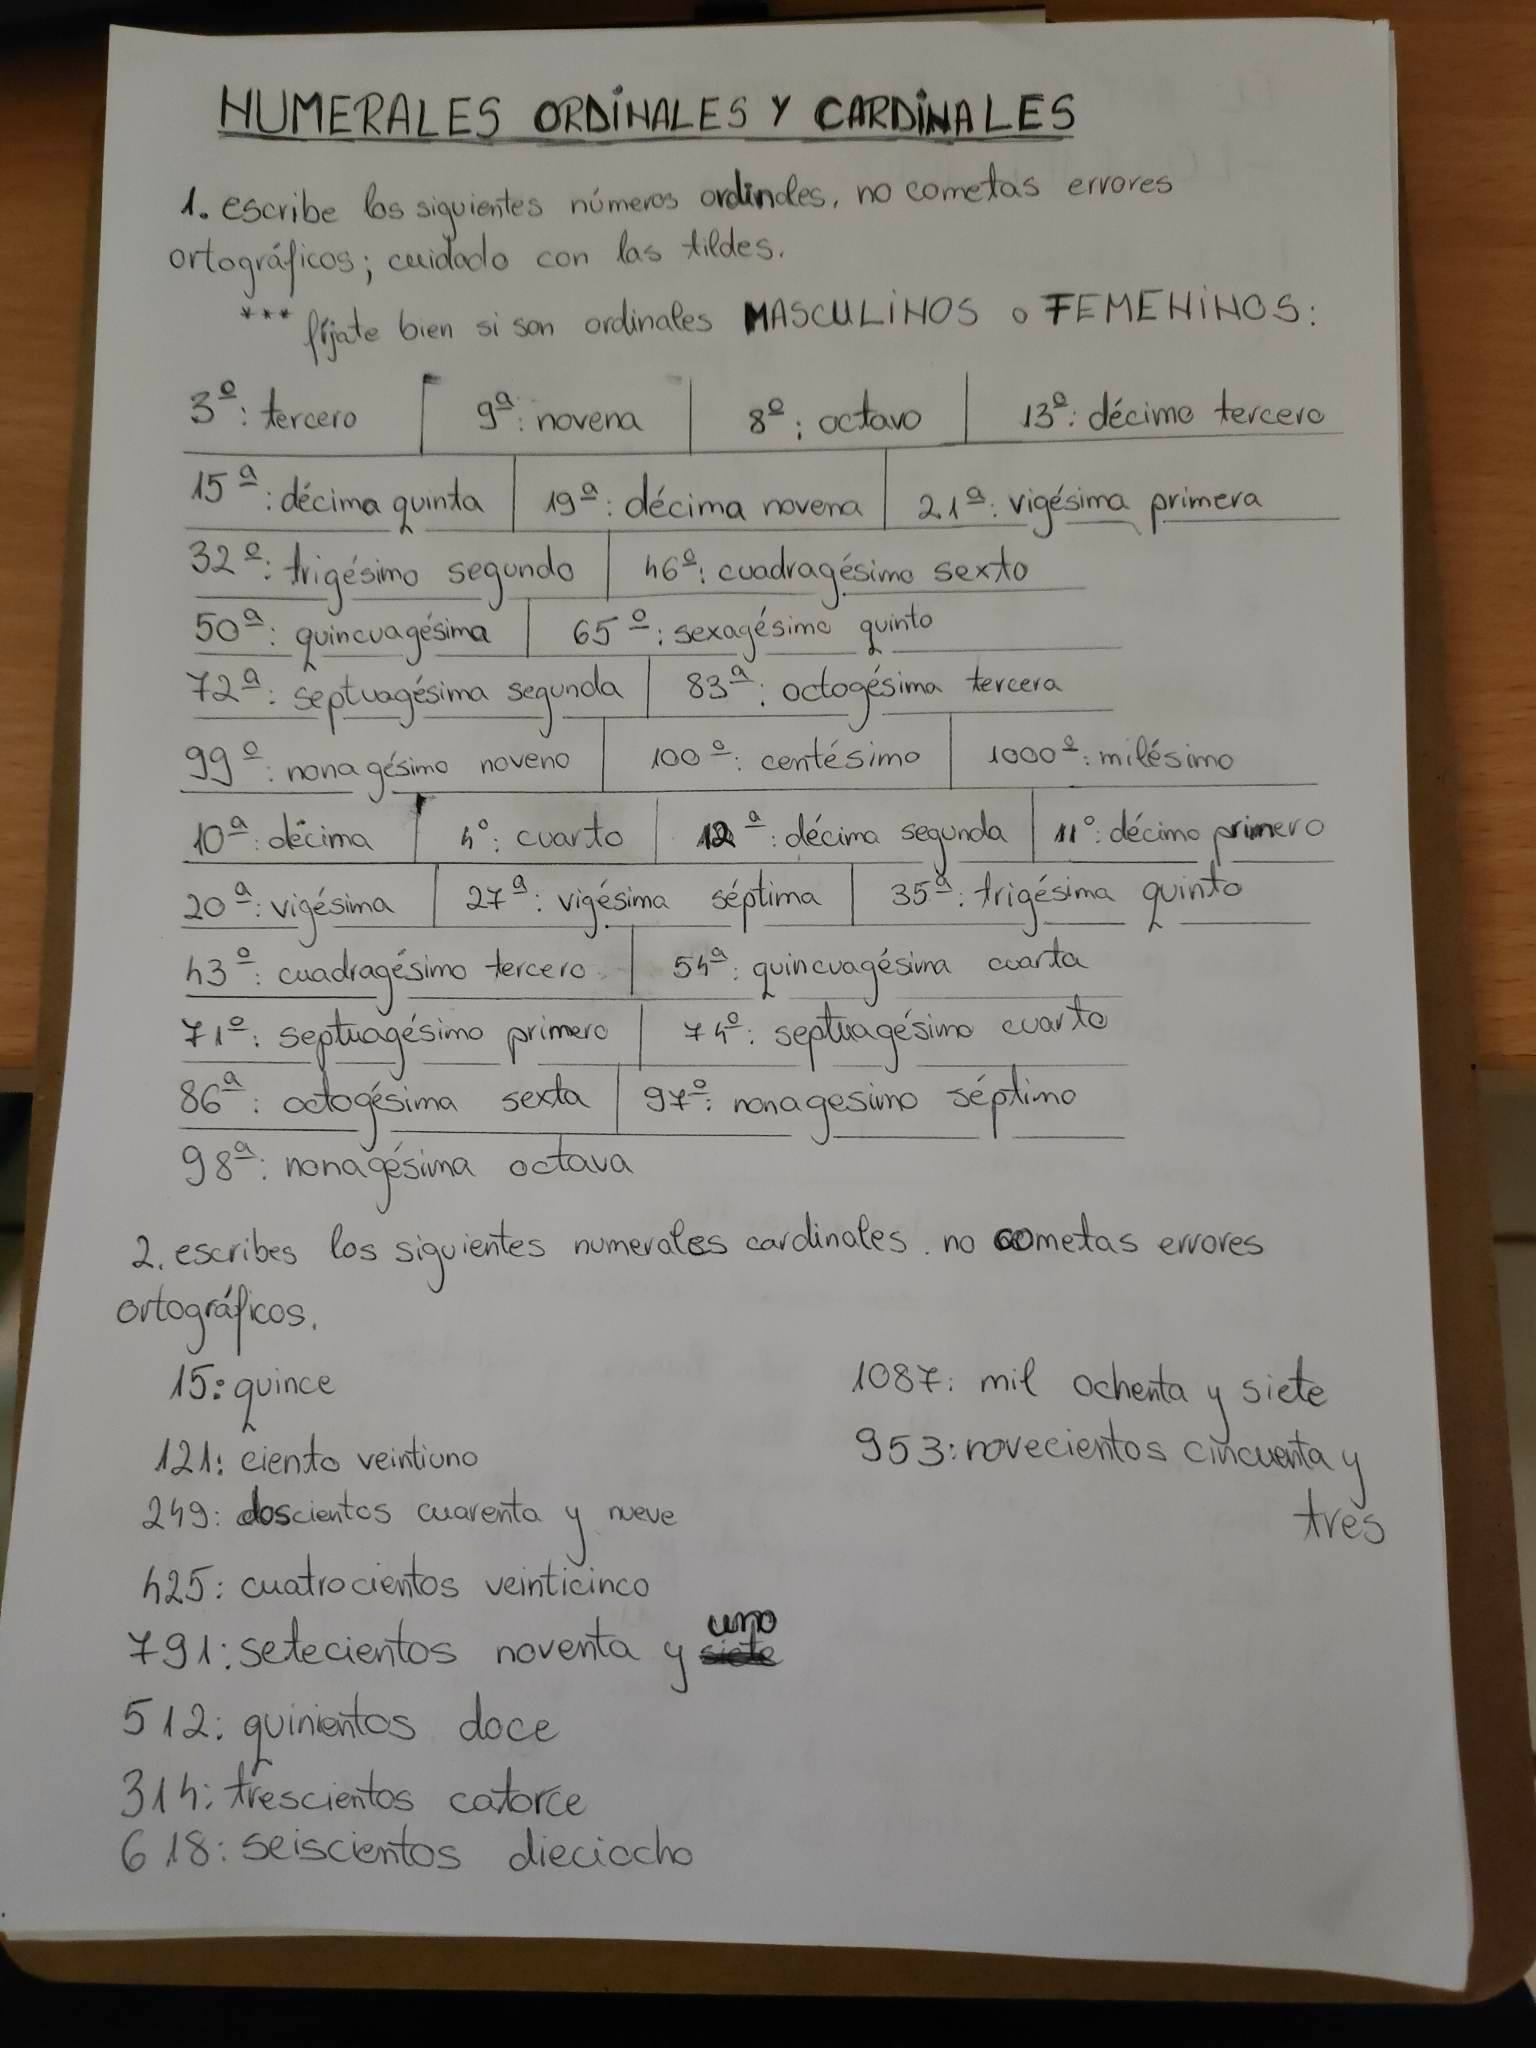 NUMERALES ORDINALES Y CARDINALES
1. escribe los siguientes números ordinales, no cometas errores
ortográficos; cuidado con las tildes.
*** fíjate bien si son ordinales MASCULINOS o FEMENINOS:
3º: tercero 9ª: novena 8º: octavo 13º: décimo tercero
15ª: décima quinta 19ª: décima novena 21ª: vigésima primera
32º: trigésimo segundo 46º: cuadragésimo sexto
50ª: quincuagésima 65º: sexagésimo quinto
72ª: septuagésima segunda 83ª: octogésima tercera
99º: nonagésimo noveno 100º: centésimo 1000º: milésimo
10ª: décima 4º: cuarto 12ª: décima segunda 11º: décimo primero
20ª: vigésima 27ª: vigésima séptima 35ª: trigésima quinto
43º: cuadragésimo tercero 54ª: quincuagésima cuarta
71º: septuagésimo primero 74º: septuagésimo cuarto
86ª: octogésima sexta 97º: nonagesimo séptimo
98ª: nonagésima octava
2. escribes los siguientes numerales cardinales. no cometas errores
ortográficos.
15: quince
121: ciento veintiuno
249: doscientos cuarenta y nueve
425: cuatrocientos veinticinco
791: setecientos noventa y siete uno
512: quinientos doce
314: trescientos catorce
618: seiscientos dieciocho
1087: mil ochenta y siete
953: novecientos cincuenta y
tres